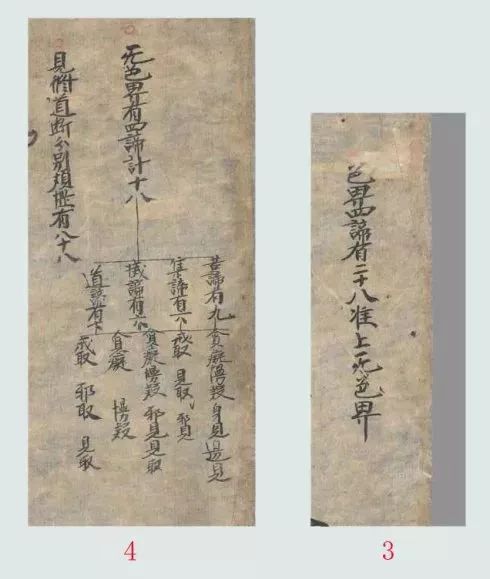 色界四諦有二十八准上无色界
3
无色界有四諦計十八
苦諦有九 貪癡慢疑 身見邊見
集諦有六 戒取 見取 邪見
滅諦有六 貪癡慢疑 邪見見取
貪癡 慢疑
道諦有 戒取 邪取 見取
見脩道断分別煩惱有八十八
4